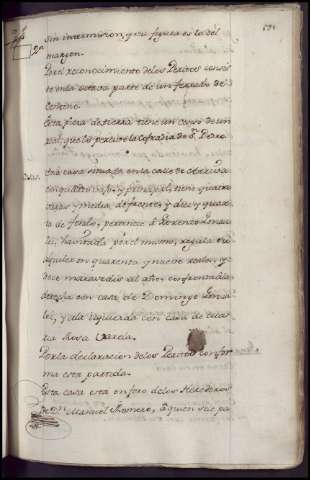 sin intermision, y su figura es la del
margen.
Por el reconocimiento de los Peritos consis
te en la octava parte de un ferrado de
Centeno.
Esta pieza de tierra tiene un censo de un
real, que lo percive la Cofradia de Sn. Pedro
Casa.
Otra casa situada en la calle de
con quarto vajo, y principal, tiene quatro
varas y media de frente, y diez y quar
ta de fondo, pertenece a Lorenzo Gonza
lez, havitada por el mismo, regula su
alquiler en quarenta y nueve reales, y
doce maravedis al año, confronta a la
derecha con casa de Domingo Gonza
lez, y a la izquierda con casa de
Rosa Garcia.
Por la declaracion de los Peritos confor
ma esta partida.
Esta casa esta en foro de los Herederos
de Dn. Manuel Romero, a quien se le pa